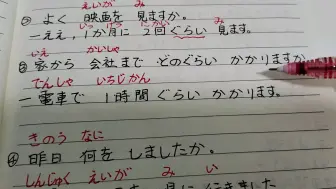 えいが み
② よく 映画を 見ますか。
いっ げつ にかい み
ーええ、1か月に 2回ぐらい 見ます。
いえ かいしゃ
③ 家から 会社まで どのぐらい かかりますか
でんしゃ いちじかん
ー電車で 1時間ぐらい かかります。
きのう なに
④ 昨日 何を しましたか。
しんじゅく えいが み い